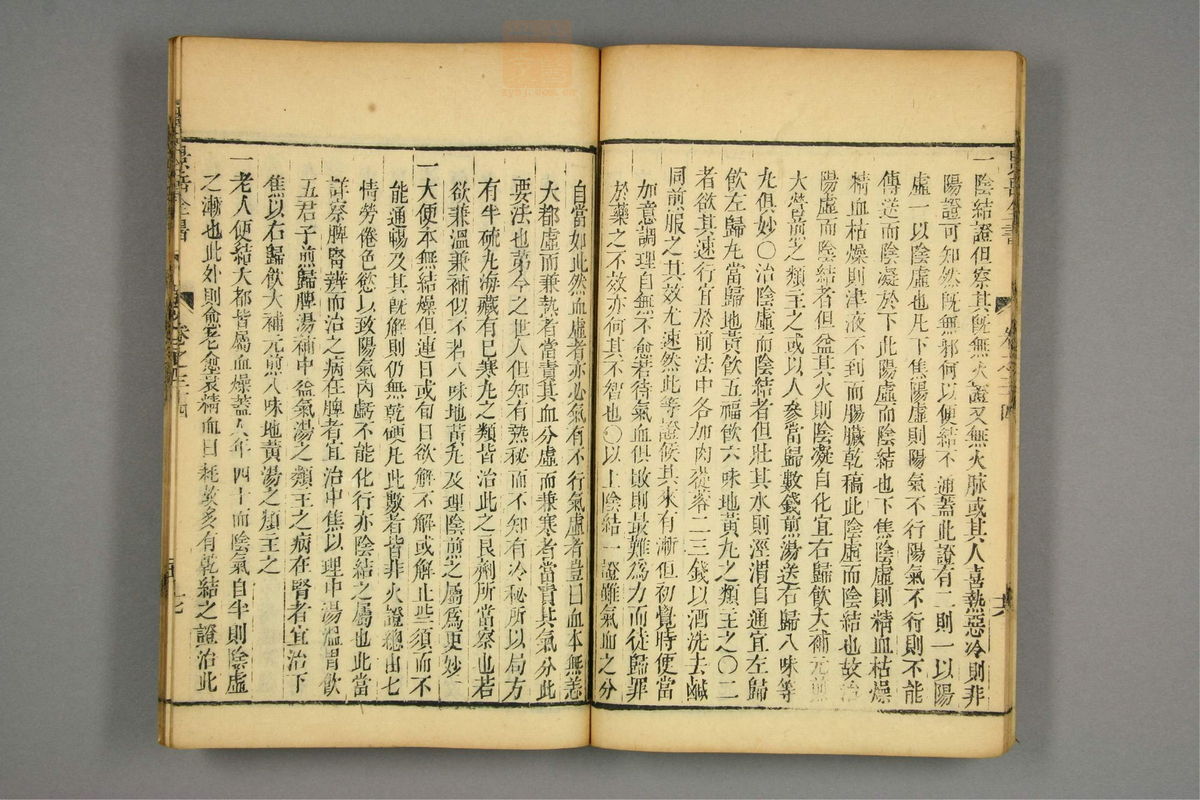 一陰結證但察其旣無火證又無火脉或其人喜熱惡冷則非
陽證可知然旣無邪何以便結不通葢此證有二則一以陽
虛一以陰虛也凡下焦陽虛則陽氣不行陽氣不行則不能
傳送而陰凝於下此陽虛而陰結也下焦陰虛則精血枯燥
精血枯燥則津液不到而腸臟乾槁此陰虛而陰結也故治
陽虛而陰結者但益其火則陰凝自化宜右歸飮大補元煎
大營煎之類主之或以人參當歸數錢煎湯送右歸八味等
丸俱妙〇治陰虛而陰結者但壯其水則涇渭自通宜左歸
飮左歸丸當歸地黃飮五福飮六味地黃丸之類主之〇二
者欲其速行宜於前法中各加肉蓯蓉二三錢以酒洗去鹹
同煎服之其效尤速然此等證候其來有漸但初覺時便當
加意調理自無不愈若待氣血俱敗則最難爲力而徒歸罪
於藥之不效亦何其不智也〇以上陰結一證雖氣血之分
自當如此然血虛者亦必氣有不行氣虛者豈曰血本無恙
大都虛而兼熱者當責其血分虛而兼寒者當責其氣分此
要法也第今之世人但知有熱秘而不知有冷秘所以局方
有半硫丸海藏有已寒丸之類皆治此之良劑所當察也若
欲兼溫兼補似不若八味地黃丸及理陰煎之屬爲更妙
一大便本無結燥但連日或旬日欲解不解或解止些須而不
能通暢及其旣解則仍無乾硬凡此數者皆非火證總由七
情勞倦色慾以致陽氣內虧不能化行亦陰結之屬也此當
詳察脾腎辨而治之病在脾者宜治中焦以理中湯溫胃飮
五君子煎歸脾湯補中益氣湯之類主之病在腎者宜治下
焦以右歸飮大補元煎八味地黃湯之類主之
一老人便結大都皆屬血燥葢人年四十而陰氣自半則陰虛
之漸也此外則愈老愈衰精血日耗故多有乾結之證治此